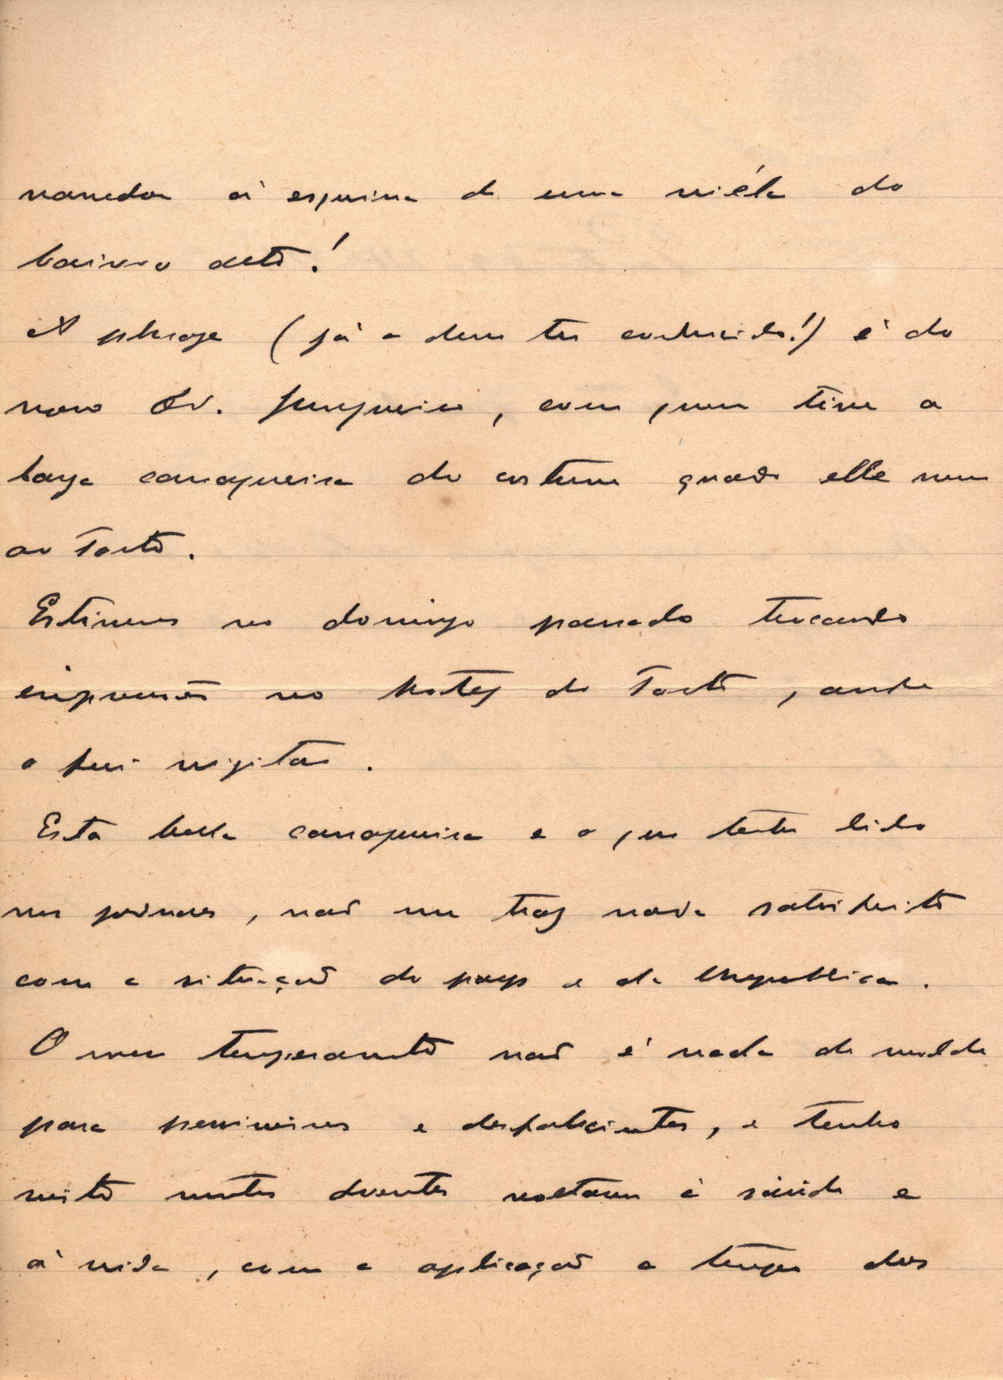 à esquina de uma viéla do
bairro alto!
A phrase (já a deves ter conhecido!) é do
nosso Dr. Junqueiro, com quem tive a
larga cavaqueira do costume quando elle vem
ao Porto.
Estivemos no domingo passado trocando
impressões no Hotel do Porto, onde
o fui visitar.
Esta bella cavaqueira e o que tenho lido
nos jornaes, não me traz nada satisfeito
com a situação do payz e da Republica.
O meu temperamento não é nada de molde
para pessimismos e desfalecimentos, e tenho
visto muitos doentes voltarem á saúde e
á vida, com a aplicação a tempo dos